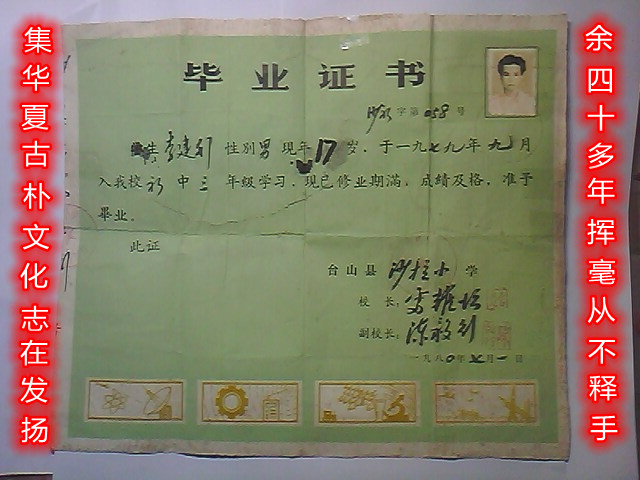 余四十多年挥毫从不释手
集华夏古朴文化志在发扬
毕业证书
字第058号
李建利 性别男现年17岁,于一九七九年九月
入我校初中三年级学习,现已修业期满,成绩及格,准予
畢业。
此证
台山县 沙栏小学
校长:李耀培
副校长:陈毅利
一九八〇年七月一日